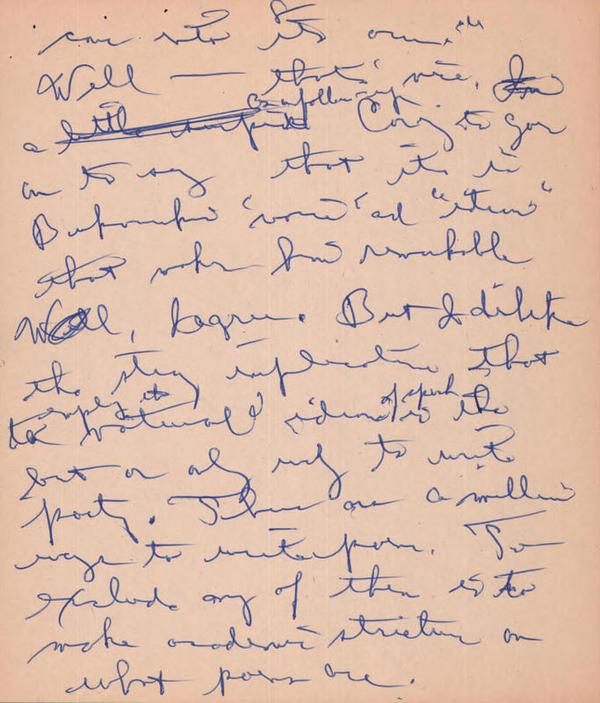 come into its own."
Well — that's nice.
a little stupid Corrington goes
on to say that it is
Bukowski's 'voice' and "idiom"
that makes him remarkable
Well, I agree. But I dislike
the strong implication that
simply the
natural idiom of speech is the
best or only way to write
poetry. There are a million
ways to write poem. To
exclude any of them is to
make academic strictures on
what poems are.